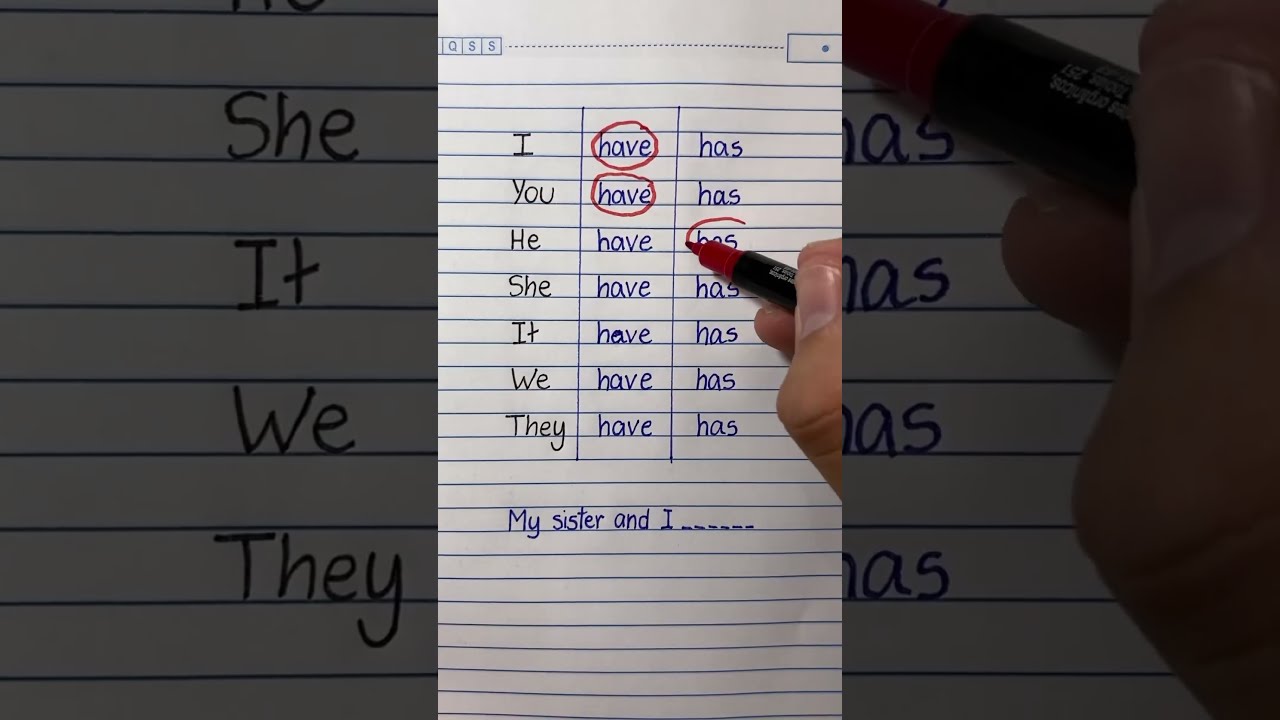 Q S S
I have has
You have has
He have has
She have has
It have has
We have has
They have has
My sister and I ______